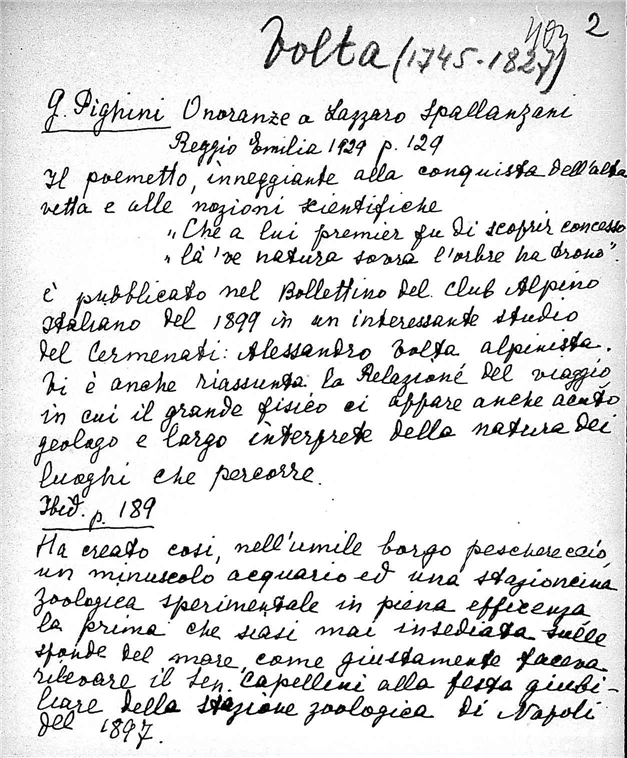 2
Volta (1745-1827)
G. Pighini Onoranze a Lazzaro Spallanzani
Reggio Emilia 1929 p. 129
Il poemetto, inneggiante alla conquista dell'alta
vetta e alle nozioni scientifiche
"Che a lui premier fu di scoprir concesso
"là 've natura sovra l'orbe ha trono".
è pubblicato nel Bollettino del Club Alpino
Italiano del 1899 in un interessante studio
del Cermenati: Alessandro Volta alpinista.
Vi è anche riassunta la Relazione del viaggio
in cui il grande fisico ci appare anche acuto
geologo e largo interprete della natura dei
luoghi che percorre.
Ibid. p. 189
Ha creato così, nell'umile borgo peschereccio,
un minuscolo acquario ed una stazioncina
zoologica sperimentale in piena efficenza
la prima che siasi mai insediata sulle
sponde del mare, come giustamente faceva
rilevare il Sen. Capellini alla festa giubi-
liare della stazione zoologica di Napoli
del 1897.